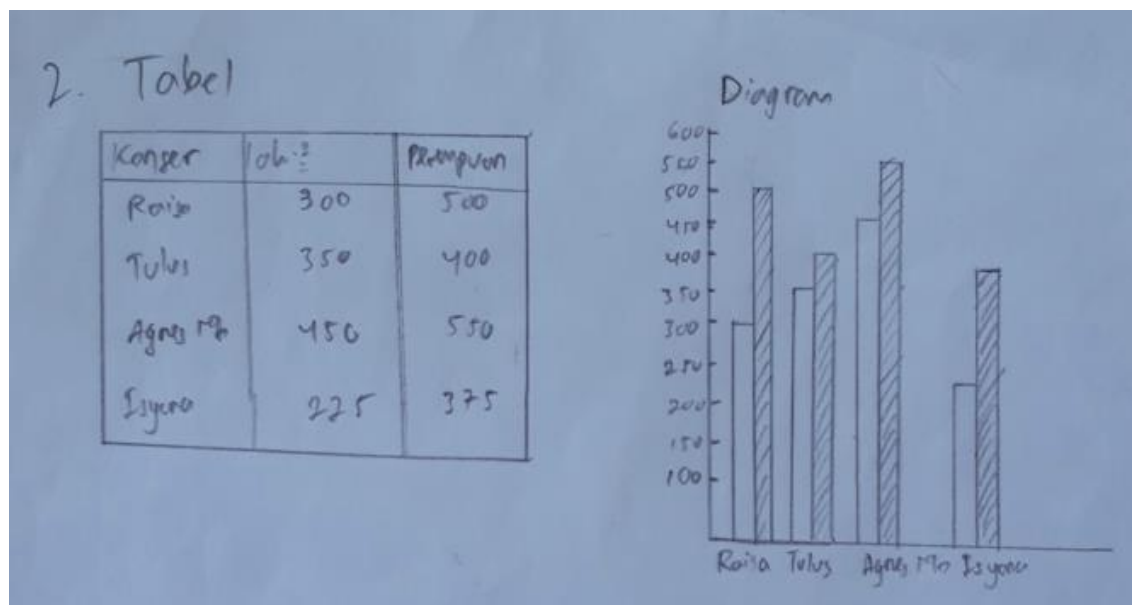 2. Tabel
Konser Laki2 Perempuan
Raisa 300 500
Tulus 350 400
Agnes Mo 450 550
Isyana 225 375
Diagram
600
550
500
450
400
350
300
250
200
150
100
Raisa Tulus Agnes Mo Isyana